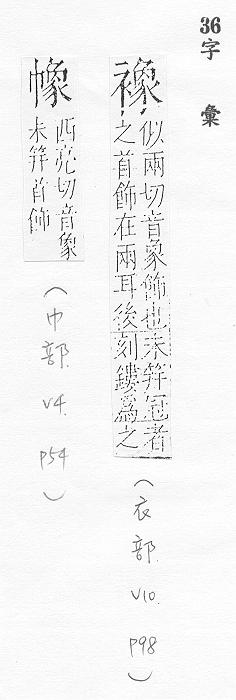 36
字彙
襐
似兩切音象飾也未笄冠者
之首飾在兩耳後刻鏤為之
(衣部. V10. P98)
㡟
西亮切音象
未笄首飾
(巾部. V4. P54)